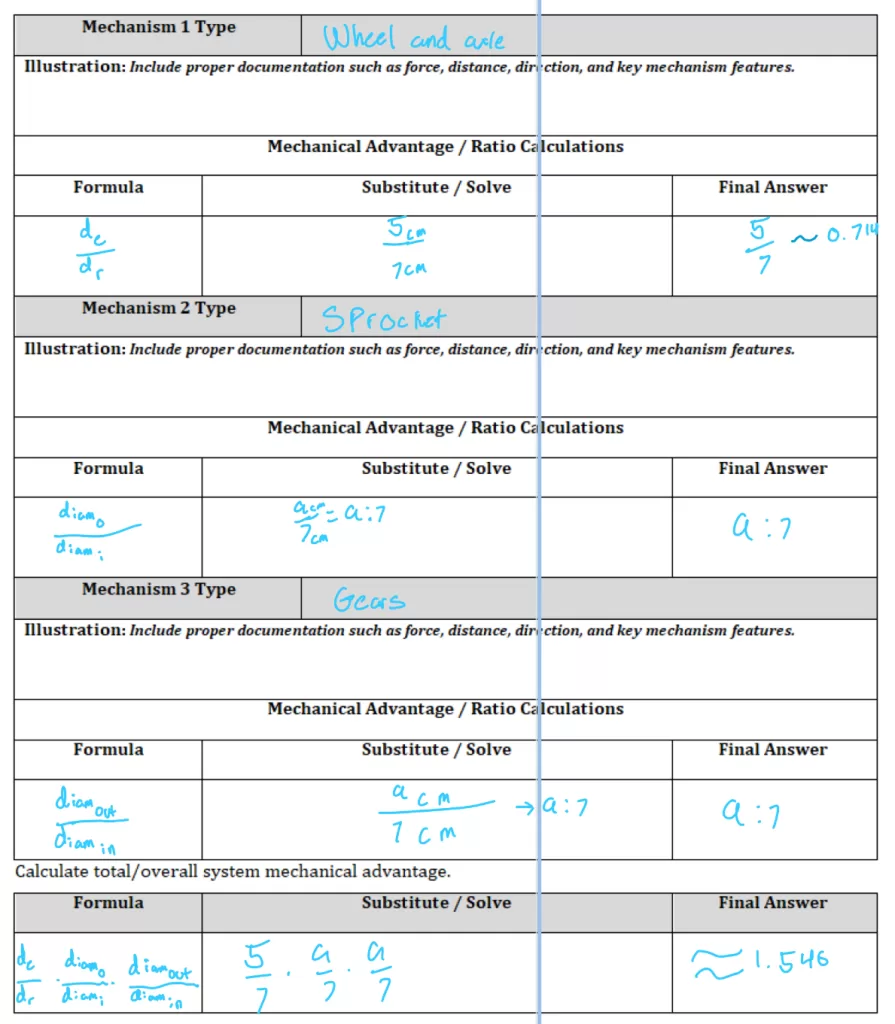 Mechanism 1 Type Wheel and axle
Illustration: Include proper documentation such as force, distance, direction, and key mechanism features.
Mechanical Advantage / Ratio Calculations
Formula Substitute / Solve Final Answer
de/dr 5cm/7cm 5/7 ~ 0.714
Mechanism 2 Type Sprocket
Illustration: Include proper documentation such as force, distance, direction, and key mechanism features.
Mechanical Advantage / Ratio Calculations
Formula Substitute / Solve Final Answer
diam o/diam i 9cm/7cm = 9:7 9:7
Mechanism 3 Type Gears
Illustration: Include proper documentation such as force, distance, direction, and key mechanism features.
Mechanical Advantage / Ratio Calculations
Formula Substitute / Solve Final Answer
diam out/diam in 9 cm/7 cm → 9:7 9:7
Calculate total/overall system mechanical advantage.
Formula Substitute / Solve Final Answer
de/dr · diam o/diam i · diam out/diam in 5/7 · 9/7 · 9/7 ≈ 1.546